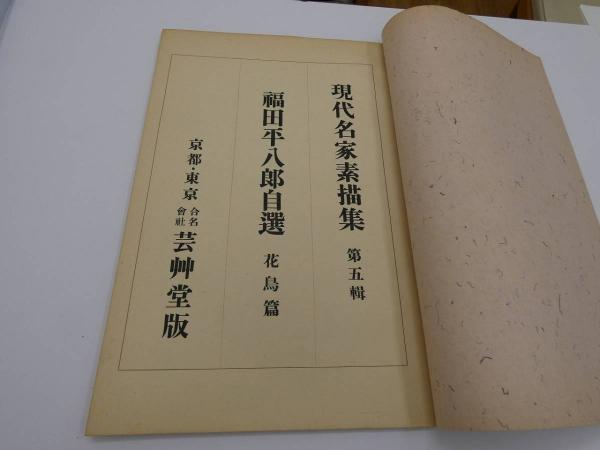 現代名家素描集 第五輯
福田平八郎自選 花鳥篇
京都・東京 合名會社 芸艸堂版